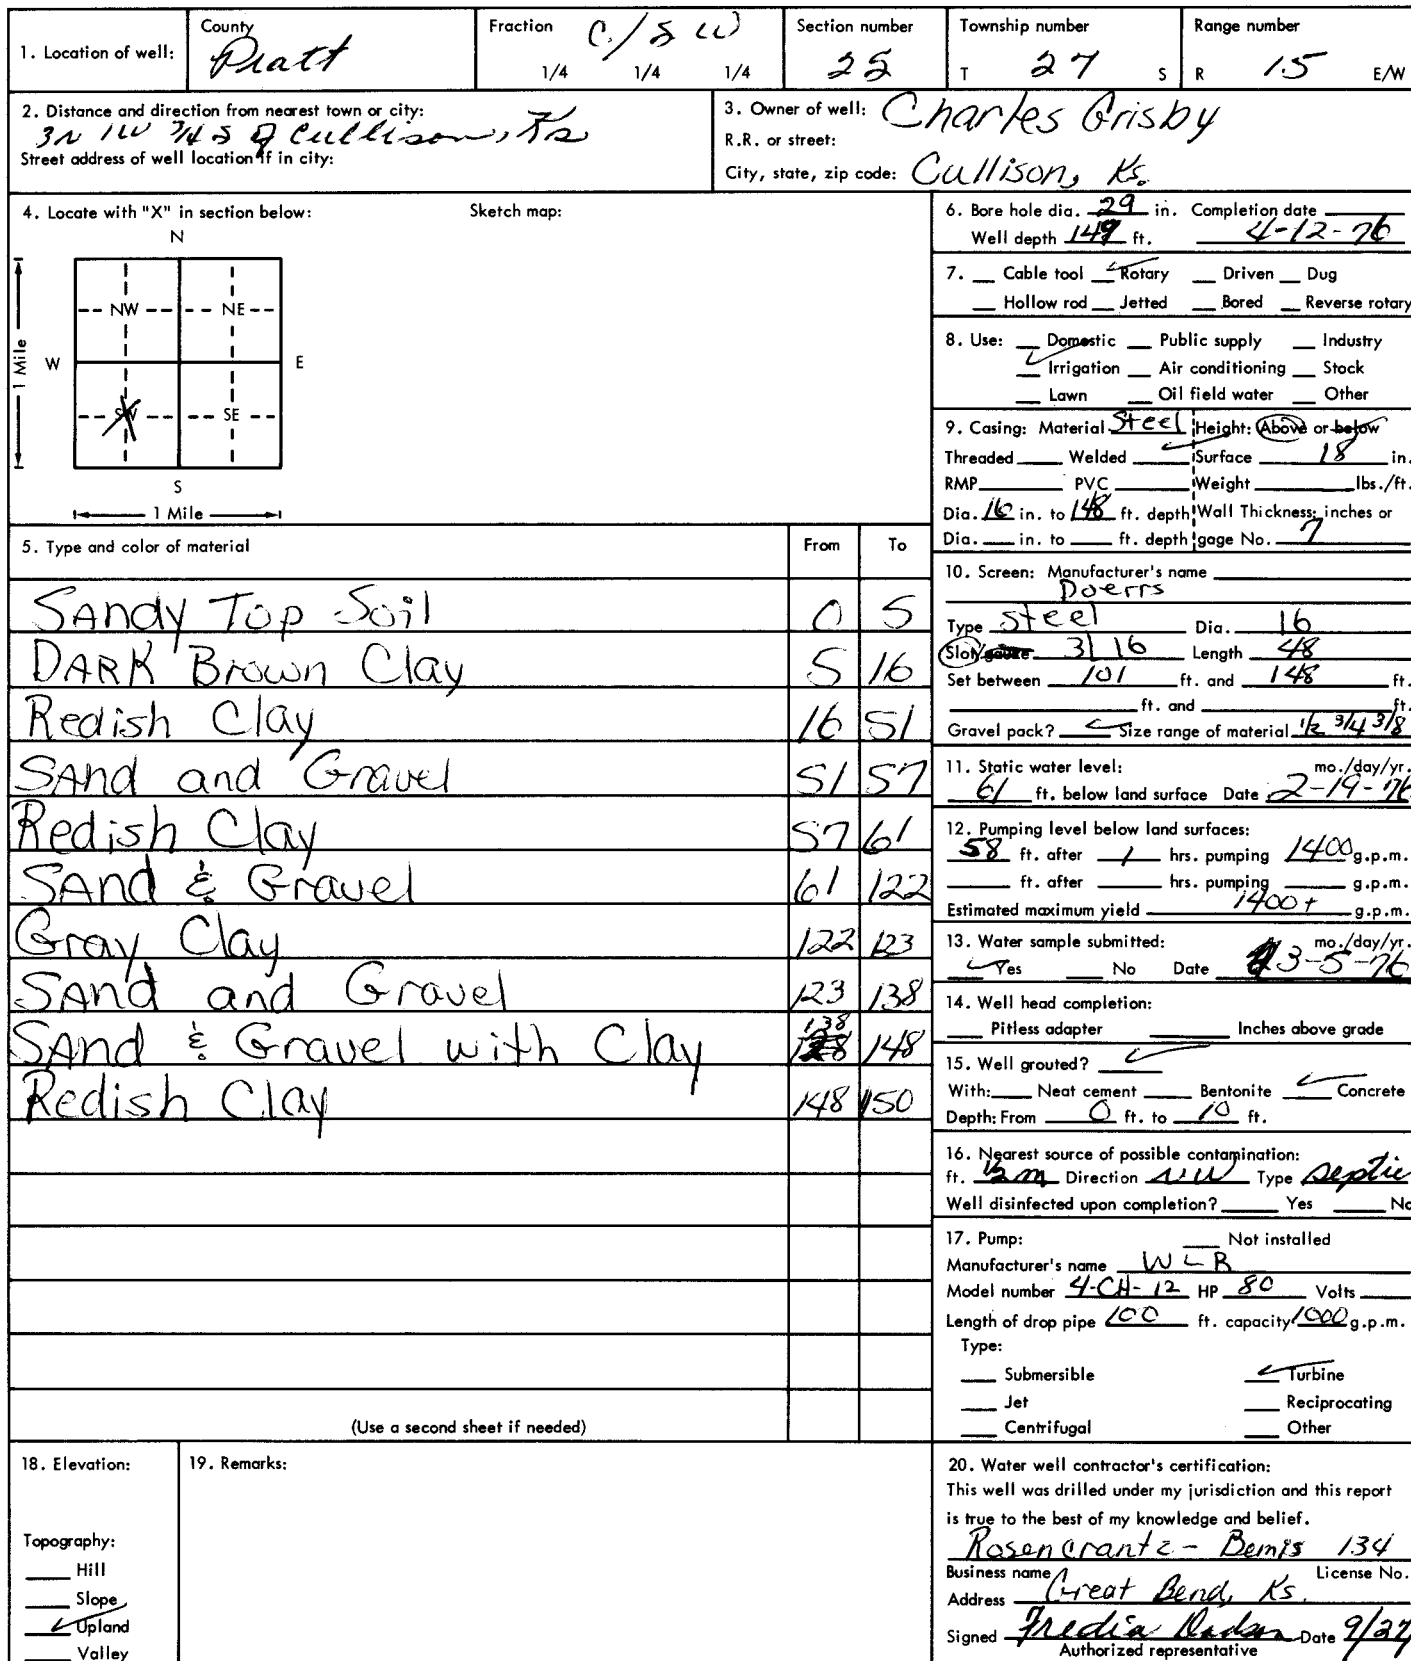 1. Location of well:
County
Pratt
Fraction C/SW
1/4 1/4 1/4
Section number
Township number
T 27 S
Range number
R 15 E/W
2. Distance and direction from nearest town or city:
3N 1W 3/4 S of Cullison, Ks
Street address of well location if in city:
3. Owner of well: Charles Grisby
R.R. or street:
City, state, zip code: Cullison, Ks.
4. Locate with "X" in section below:
Sketch map:
N
NW NE
W E
1 Mile
SW SE
S
1 Mile
5. Type and color of material From To
Sandy Top Soil 0 5
DARK Brown Clay 5 16
Redish Clay 16 51
SAnd and Gravel 51 57
Redish Clay 57 61
SAnd & Gravel 61 122
Gray Clay 122 123
SAnd and Gravel 123 138
SAnd & Gravel with Clay 138 148
Redish Clay 148 150
(Use a second sheet if needed)
6. Bore hole dia. 29 in. Completion date
Well depth 149 ft. 4-12-76
7. Cable tool ✓ Rotary Driven Dug
Hollow rod Jetted Bored Reverse rotary
8. Use: Domestic Public supply Industry
✓ Irrigation Air conditioning Stock
Lawn Oil field water Other
9. Casing: Material Steel Height: Above or below
Threaded Welded ✓ Surface 18 in.
RMP PVC Weight lbs./ft.
Dia. 16 in. to 148 ft. depth Wall Thickness: inches or
Dia. in. to ft. depth gage No. 7
10. Screen: Manufacturer's name
Doerrs
Type Steel Dia. 16
Slot/gauze 3/16 Length 48
Set between 101 ft. and 148 ft.
ft. and ft.
Gravel pack? ✓ Size range of material 1/2 3/4 3/8
11. Static water level: mo./day/yr.
61 ft. below land surface Date 2-19-76
12. Pumping level below land surfaces:
58 ft. after 1 hrs. pumping 1400 g.p.m.
ft. after hrs. pumping g.p.m.
Estimated maximum yield 1400+ g.p.m.
13. Water sample submitted: mo./day/yr.
✓ Yes No Date 3-5-76
14. Well head completion:
Pitless adapter Inches above grade
15. Well grouted? ✓
With: Neat cement Bentonite ✓ Concrete
Depth: From 0 ft. to 10 ft.
16. Nearest source of possible contamination:
ft. 1/2 m Direction NW Type septic
Well disinfected upon completion? Yes No
17. Pump: Not installed
Manufacturer's name WLR
Model number 4-CH-12 HP 80 Volts
Length of drop pipe 100 ft. capacity 1000 g.p.m.
Type:
Submersible ✓ Turbine
Jet Reciprocating
Centrifugal Other
18. Elevation:
Topography:
Hill
Slope
✓ Upland
Valley
19. Remarks:
20. Water well contractor's certification:
This well was drilled under my jurisdiction and this report
is true to the best of my knowledge and belief.
Rosencrantz - Bemis 134
Business name License No.
Address Great Bend, Ks.
Signed Fredia Date 9/27
Authorized representative